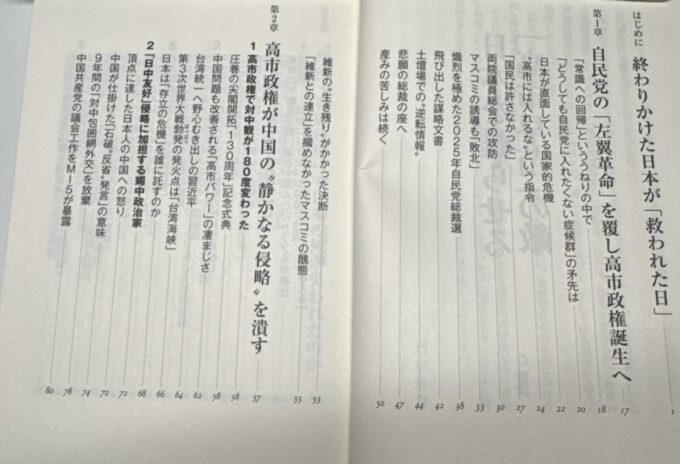 はじめに 終わりかけた日本が「救われた日」 1
第1章 自民党の「左翼革命」を覆し高市政権誕生へ 17
「常識への回帰」といううねりの中で 18
「どうしても自民党に入れたくない症候群」の矛先は 20
日本が直面している国家的危機 22
“高市には入れるな”という指令 24
「国民は許さなかった」 27
両院議員総会での攻防 30
マスコミの誘導も「敗北」 33
熾烈を極めた2025年自民党総裁選 38
飛び出した謀略文書 42
土壇場での“逆転情報” 44
悲願の総裁の座へ 47
産みの苦しみは続く 50
維新の“生き残り”がかかった決断 53
「維新との連立」を掴めなかったマスコミの醜態 55
第2章 高市政権が中国の“静かなる侵略”を潰す 57
1 高市政権で対中観が180度変わった 58
圧巻の尖閣開拓「130周年」記念式典 58
中国問題も改善される「高市パワー」の凄まじさ 62
台湾統一へ野心むき出しの習近平 64
第3次世界大戦勃発の発火点は「台湾海峡」 66
日本は「存立の危機」を誰に託すのか 68
2 「日中友好」侵略に加担する媚中政治家 72
頂点に達した日本人の中国への怒り 72
中国が仕掛けた「石破“反省”発言」の意味 74
9年間の「対中包囲網外交」を放棄 78
中国共産党の議会工作をMI-5が暴露 80